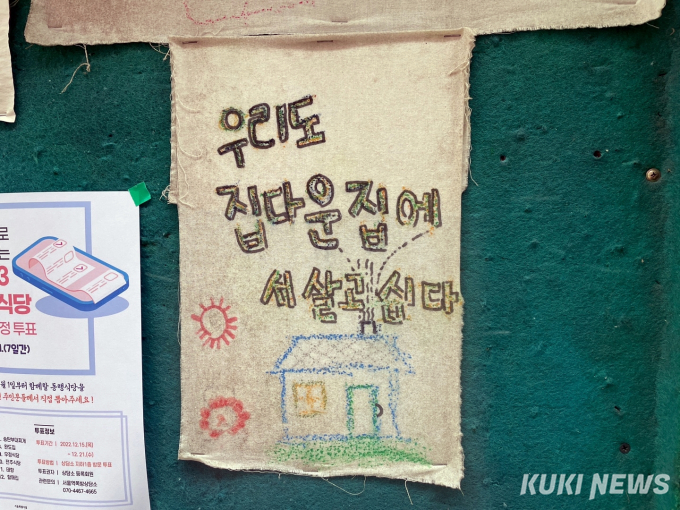 우리도
집다운집에
세살고싶다
로
는
3
식당
정 투표
.(7일간)
월 1일부터 함께할 동행식당을
주민분들께서 직접 뽑아주세요!
투표정보
투표기간 | 2022.12.15.(목)
~ 12. 21.(수)
투표방법 | 상담소 1층 방문 투표
투표권자 | 상담소 등록회원
관련문의 | 서울역쪽방상담소
070-4467-4665
KUKI NEWS